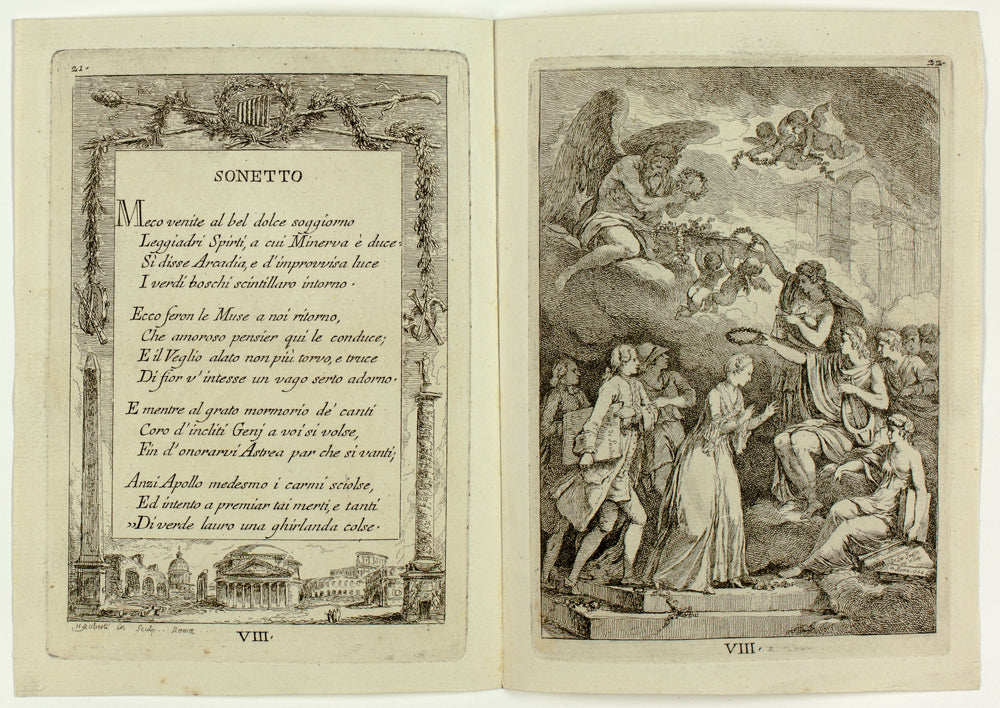 21.
SONETTO
Meco venite al bel dolce soggiorno
Leggiadri Spirti, a cui Minerva è duce.
Sì disse Arcadia, e d'improvvisa luce
I verdi boschi scintillaro intorno.
Ecco feron le Muse a noi ritorno,
Che amoroso pensier quì le conduce;
E il Veglio alato non più torvo, e truce
Di fior v'intesse un vago serto adorno.
E mentre al grato mormorio de' canti
Coro d'incliti Genj a voi si volse,
Fin d'onorarvi Astrea par che si vanti;
Anzi Apollo medesmo i carmi sciolse,
Ed intento a premiar tai merti, e tanti
»Di verde lauro una ghirlanda colse.
H. Roberti in Sculp. Romæ
VIII.
22.
VIII.